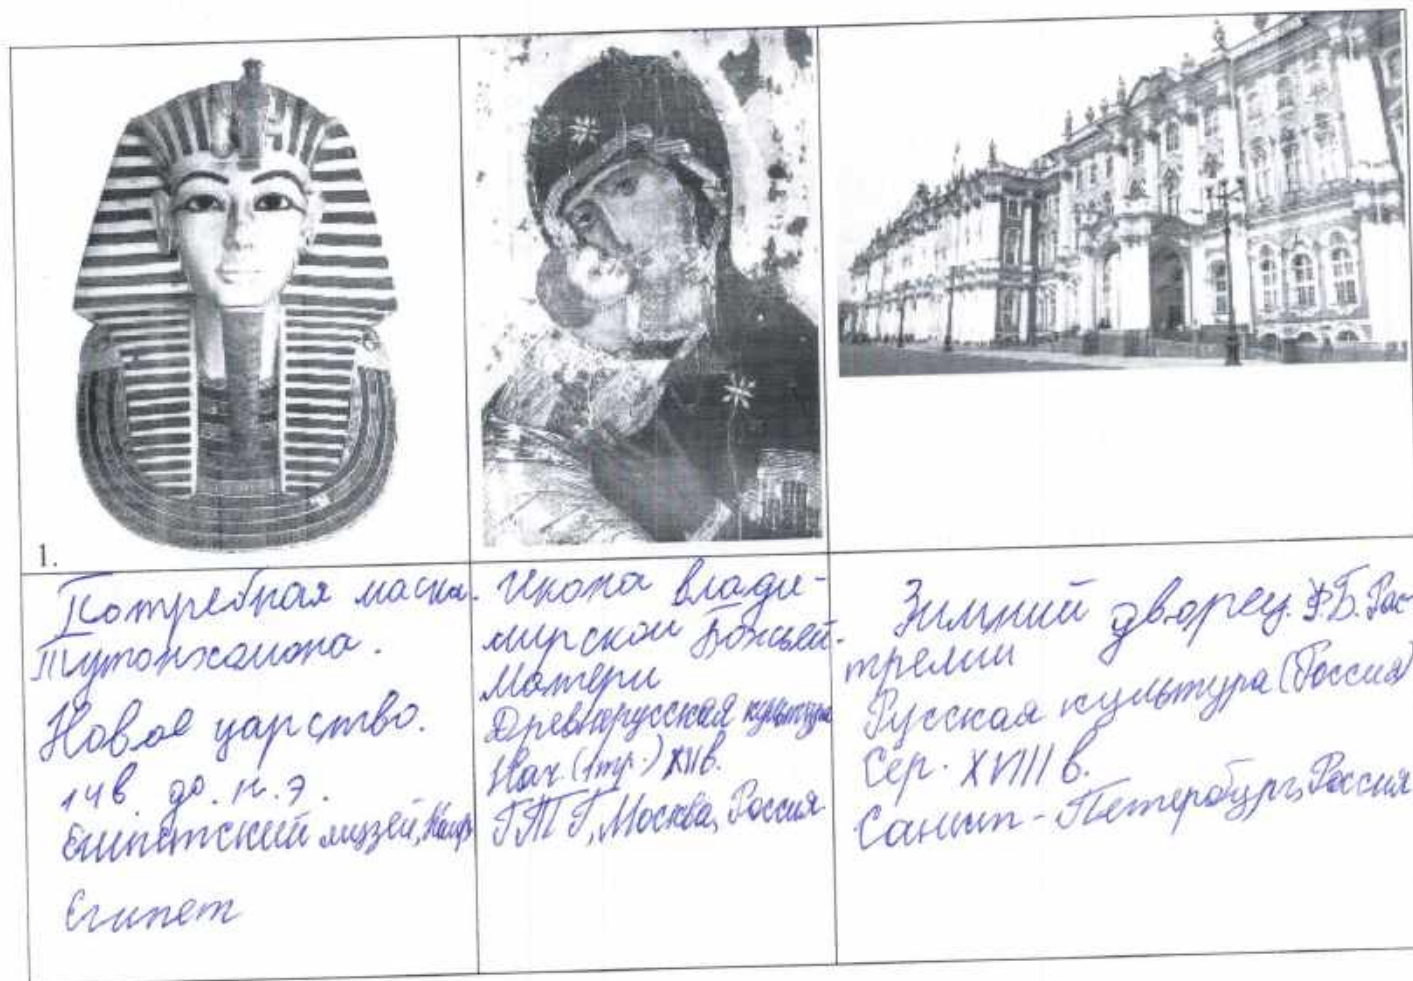 1.
Погребная маска.
Тутанхамона.
Новое царство.
14в. до. н. э.
Египетский музей, Каир
Египет
Икона Влади-
мирской Божьей
Матери
Древнерусская культура
Нач. (1тр.) XIIв.
ГТГ, Москва, Россия
Зимний дворец. Ф.Б. Рас-
трелли
Русская культура (Россия)
Сер. XVIII в.
Санкт-Петербург, Россия